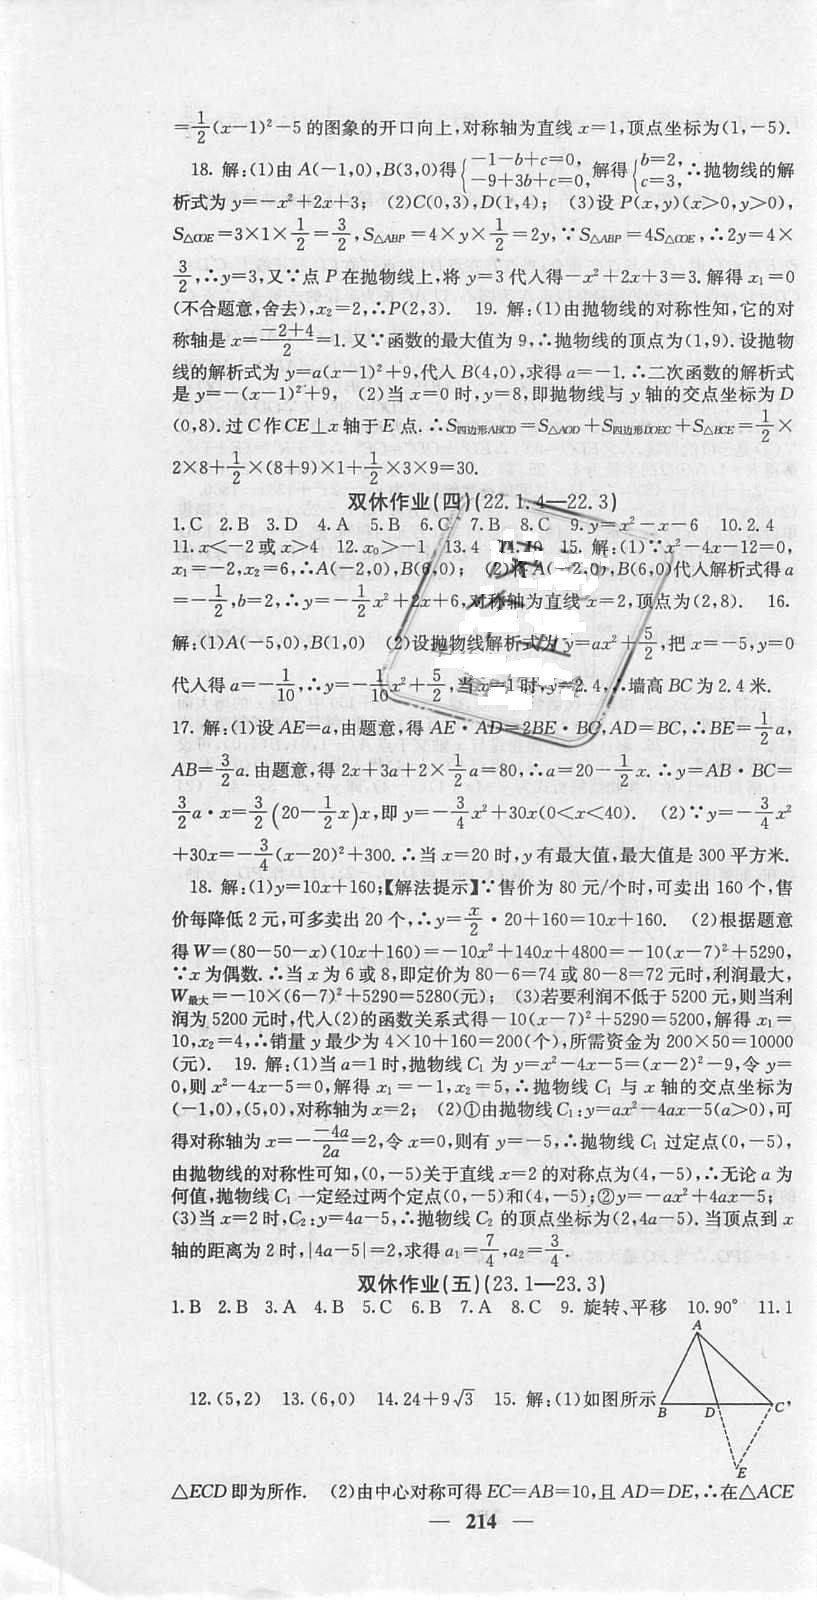 =1/2(x-1)²-5的图象的开口向上,对称轴为直线x=1,顶点坐标为(1,-5).
18. 解:(1)由A(-1,0),B(3,0)得{-1-b+c=0, -9+3b+c=0, 解得{b=2, c=3, ∴抛物线的解
析式为y=-x²+2x+3; (2)C(0,3),D(1,4); (3)设P(x,y)(x>0,y>0),
S△COE=3×1×1/2=3/2,S△ABP=4×y×1/2=2y,∵S△ABP=4S△COE,∴2y=4×
3/2,∴y=3,又∵点P在抛物线上,将y=3代入得-x²+2x+3=3.解得x₁=0
(不合题意,舍去),x₂=2,∴P(2,3). 19. 解:(1)由抛物线的对称性知,它的对
称轴是x=(-2+4)/2=1.又∵函数的最大值为9,∴抛物线的顶点为(1,9).设抛物
线的解析式为y=a(x-1)²+9,代入B(4,0),求得a=-1.∴二次函数的解析式
是y=-(x-1)²+9, (2)当x=0时,y=8,即抛物线与y轴的交点坐标为D
(0,8).过C作CE⊥x轴于E点.∴S四边形ABCD=S△AOD+S四边形DOEC+S△BCE=1/2×
2×8+1/2×(8+9)×1+1/2×3×9=30.
双休作业(四)(22.1.4—22.3)
1.C 2.B 3.D 4.A 5.B 6.C 7.B 8.C 9.y=x²-x-6 10.2.4
11.x<-2或x>4 12.x₀>-1 13.4 15. 解:(1)∵x²-4x-12=0,
x₁=-2,x₂=6,∴A(-2,0),B(6,0); (2)将A(-2,0),B(6,0)代入解析式得a
=-1/2,b=2,∴y=-1/2x²+2x+6,对称轴为直线x=2,顶点为(2,8). 16.
解:(1)A(-5,0),B(1,0) (2)设抛物线解析式为y=ax²+5/2,把x=-5,y=0
代入得a=-1/10,∴y=-1/10x²+5/2,当x=1时,y=2.4,∴墙高BC为2.4米.
17. 解:(1)设AE=a,由题意,得AE·AD=2BE·BC,AD=BC,∴BE=1/2a,
AB=3/2a.由题意,得2x+3a+2×1/2a=80,∴a=20-1/2x.∴y=AB·BC=
3/2a·x=3/2(20-1/2x)x,即y=-3/4x²+30x(0<x<40). (2)∵y=-3/4x²
+30x=-3/4(x-20)²+300.∴当x=20时,y有最大值,最大值是300平方米.
18. 解:(1)y=10x+160;【解法提示】∵售价为80元/个时,可卖出160个,售
价每降低2元,可多卖出20个,∴y=x/2·20+160=10x+160. (2)根据题意
得W=(80-50-x)(10x+160)=-10x²+140x+4800=-10(x-7)²+5290,
∵x为偶数.∴当x为6或8,即定价为80-6=74或80-8=72元时,利润最大,
W最大=-10×(6-7)²+5290=5280(元); (3)若要利润不低于5200元,则当利
润为5200元时,代入(2)的函数关系式得-10(x-7)²+5290=5200,解得x₁=
10,x₂=4,∴销量y最少为4×10+160=200(个),所需资金为200×50=10000
(元). 19. 解:(1)当a=1时,抛物线C₁为y=x²-4x-5=(x-2)²-9,令y=
0,则x²-4x-5=0,解得x₁=-1,x₂=5,∴抛物线C₁与x轴的交点坐标为
(-1,0),(5,0),对称轴为x=2; (2)①由抛物线C₁:y=ax²-4ax-5(a>0),可
得对称轴为x=-(-4a)/2a=2,令x=0,则有y=-5,∴抛物线C₁过定点(0,-5),
由抛物线的对称性可知,(0,-5)关于直线x=2的对称点为(4,-5),∴无论a为
何值,抛物线C₁一定经过两个定点(0,-5)和(4,-5);②y=-ax²+4ax-5;
(3)当x=2时,C₂:y=4a-5,∴抛物线C₂的顶点坐标为(2,4a-5).当顶点到x
轴的距离为2时,|4a-5|=2,求得a₁=7/4,a₂=3/4.
双休作业(五)(23.1—23.3)
1.B 2.B 3.A 4.B 5.C 6.B 7.A 8.C 9. 旋转、平移 10.90° 11.1
A
12.(5,2) 13.(6,0) 14.24+9√3 15. 解:(1)如图所示 B D C,
E
△ECD即为所作. (2)由中心对称可得EC=AB=10,且AD=DE,∴在△ACE
— 214 —